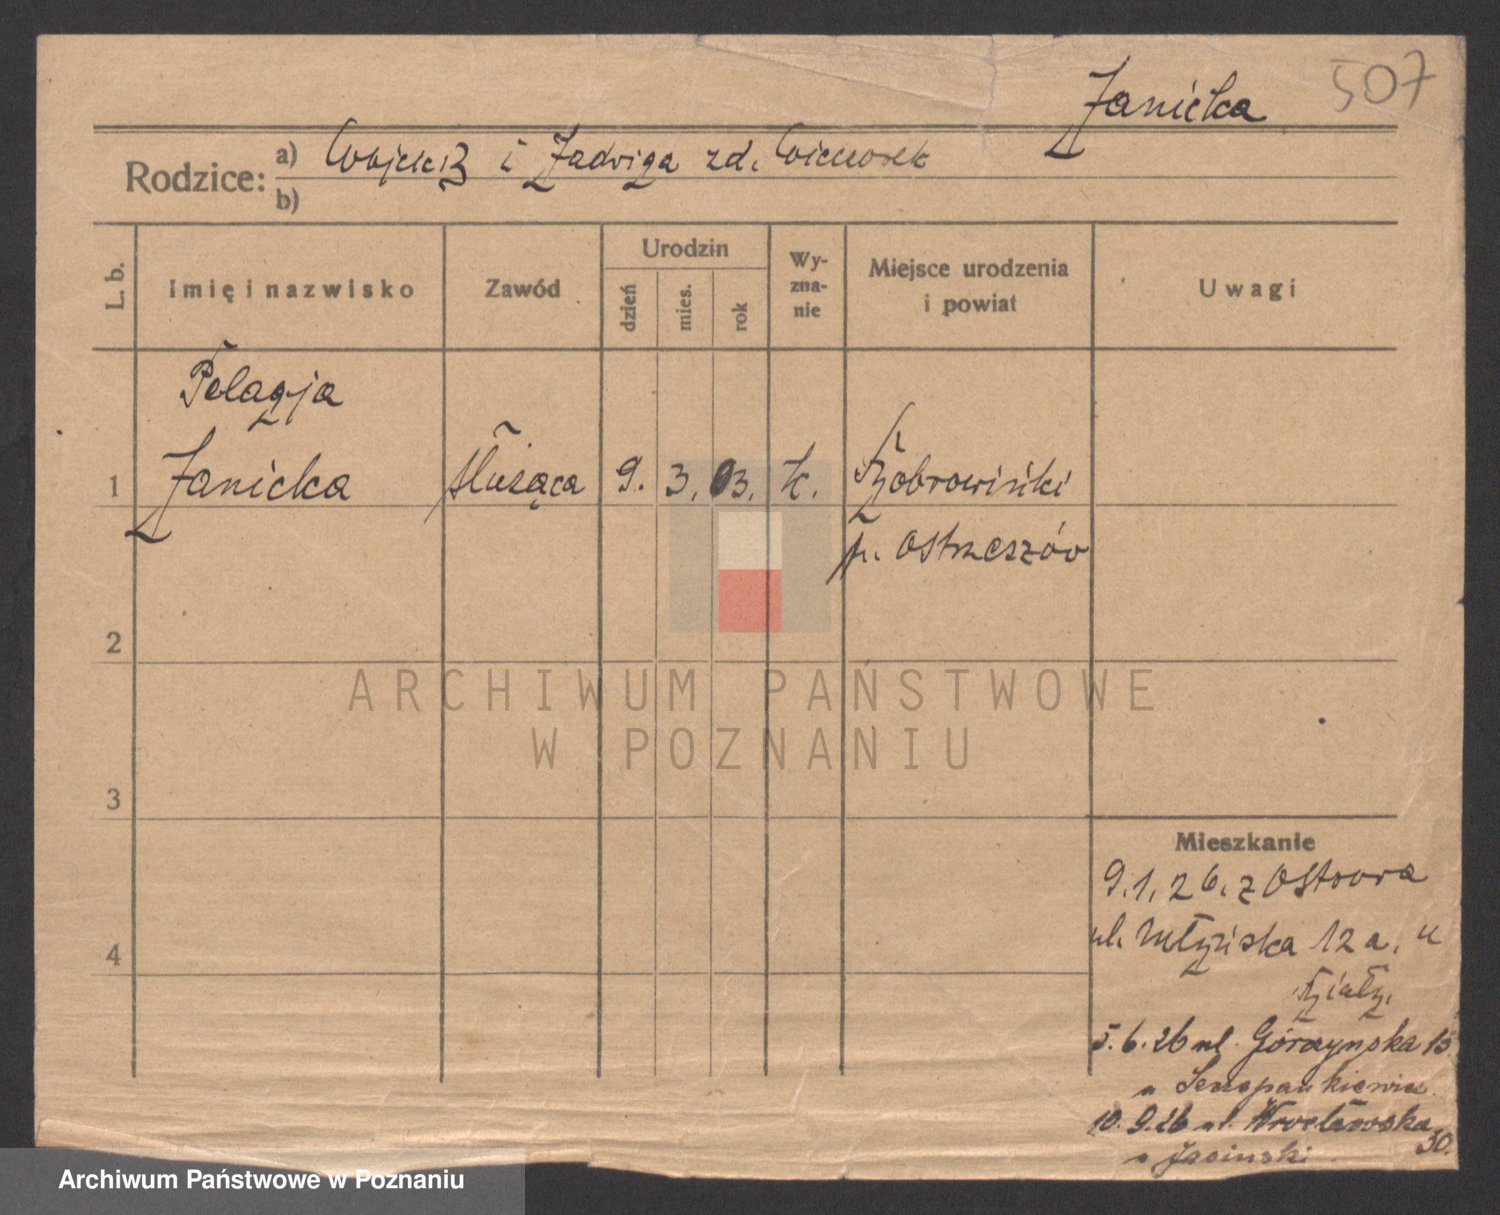 Janicka 507
Rodzice: a) Wojciech i Jadwiga zd. Wieczorek
b)
L. b.
Imię i nazwisko
Zawód
Urodzin
dzień
mies.
rok
Wy-
zna-
nie
Miejsce urodzenia
i powiat
Uwagi
Pelagja
1 Janicka służąca 9. 3. 03. k.
p. Ostrzeszów
2
3
4
ARCHIWUM PAŃSTWOWE
W POZNANIU
Mieszkanie
9.1.26. z Ostrowa
ul. Młyńska 12a. u
5.6.26 ul. Górczyńska 15
u Szczepankiewicz
10.9.26 ul. Wrocławska
30.
u Jasiński
Archiwum Państwowe w Poznaniu